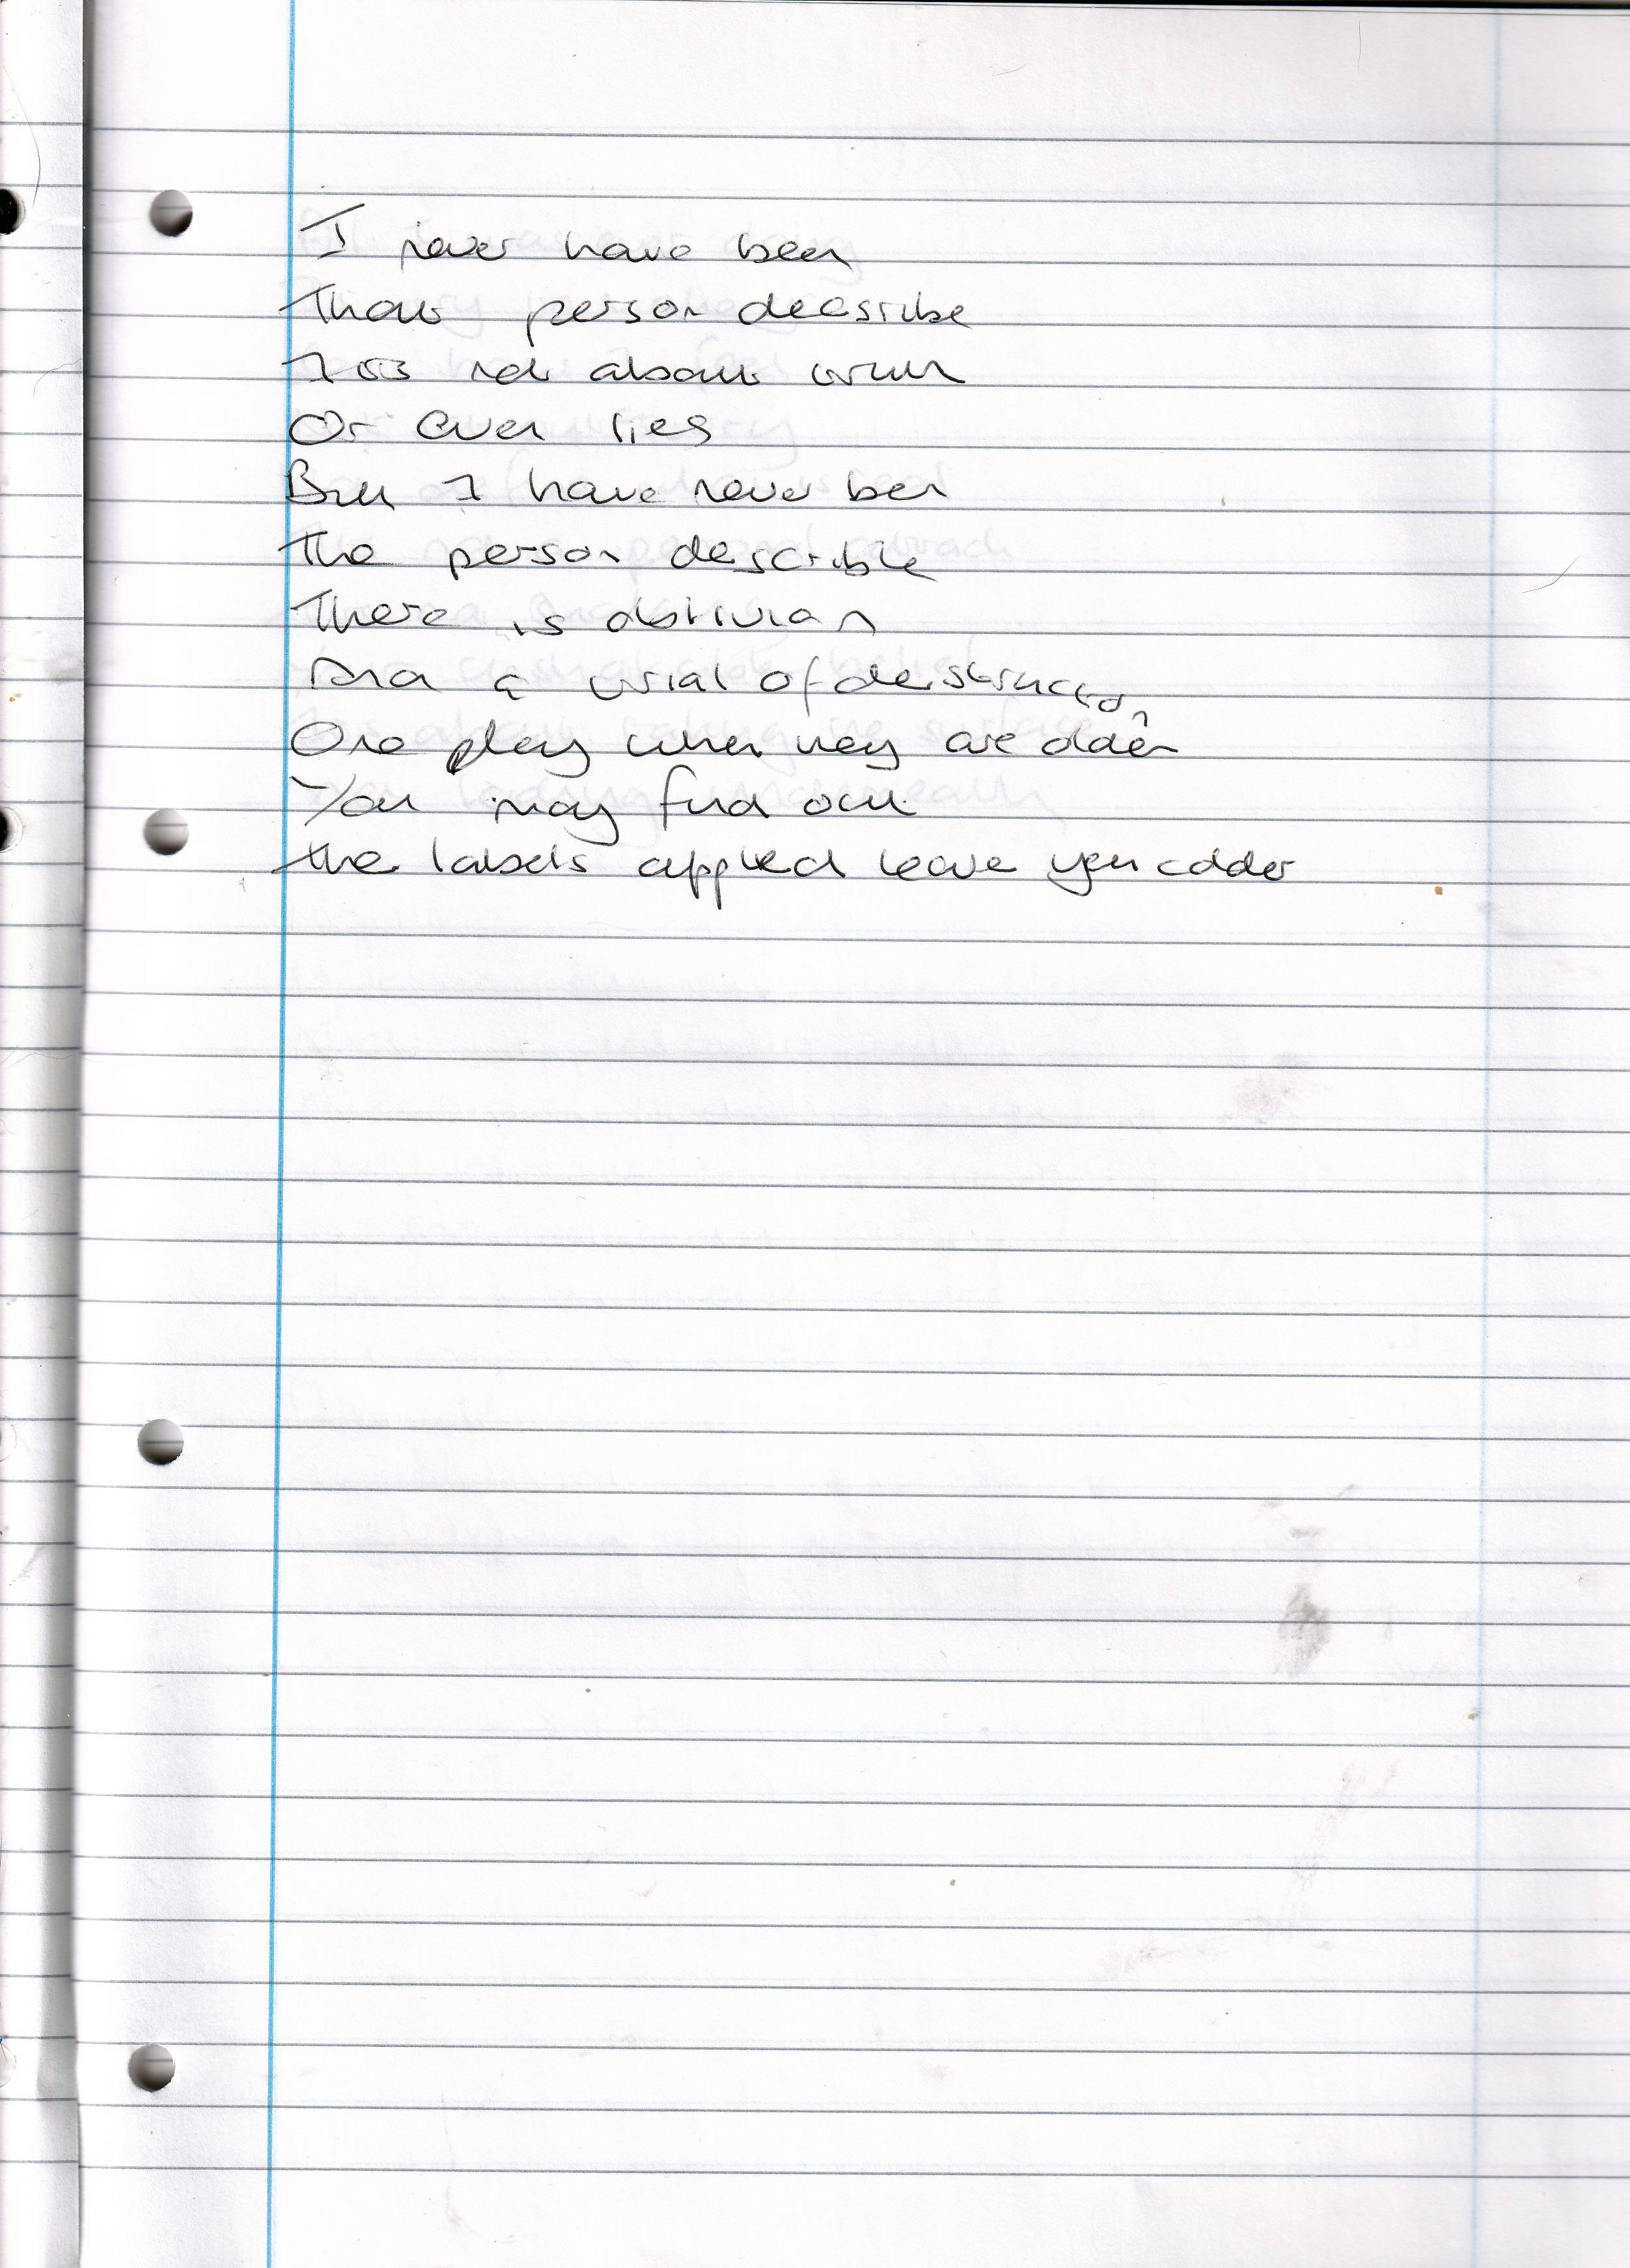 I never have been
That person decsribe
I is not about truth
Or even lies
But I have never ben
The person describle
There is oblivian
And a trial of destruction
One play when they are older
You may find out
the labels applied leave you colder